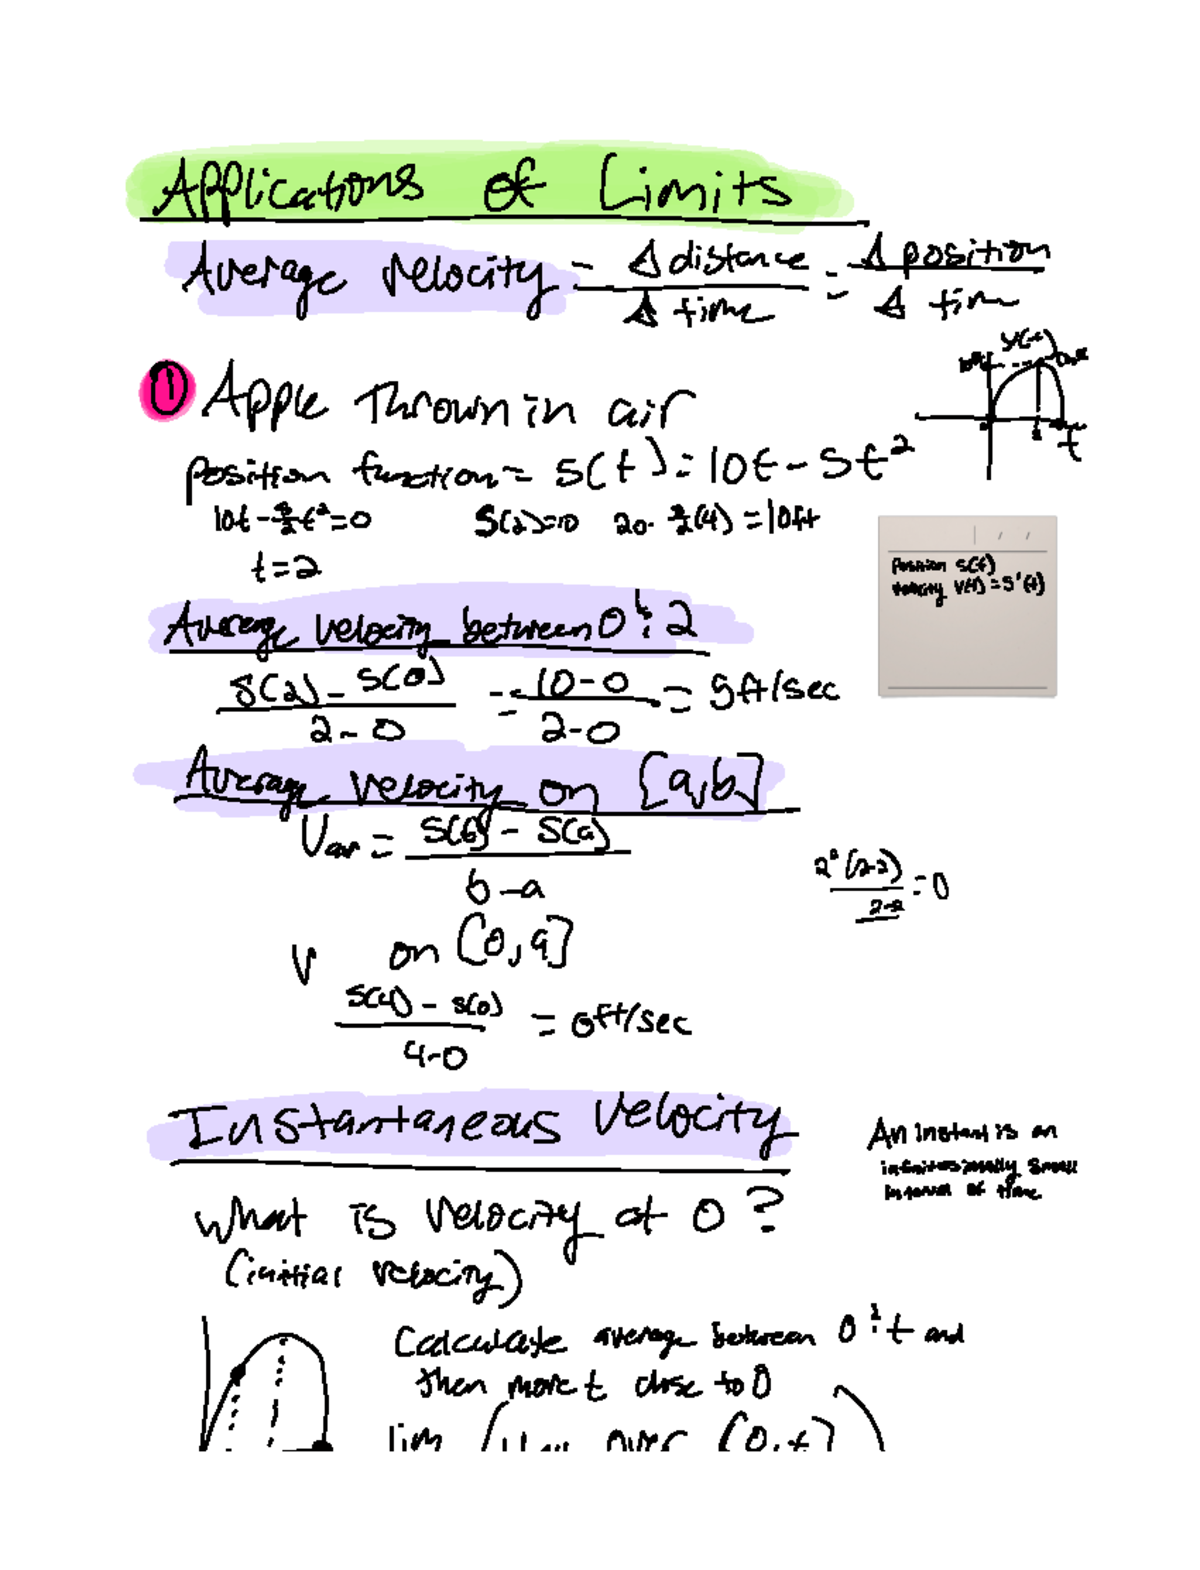 Applications of Limits
Average velocity = Δ distance / Δ time = Δ position / Δ time
① Apple Thrown in air
position function = s(t) = 10t - 5t²
10t - 5/2 t² = 0 S(2)=10 20 - 5/2(4) = 10ft
t = 2
Position S(t)
Velocity V(t) = S'(t)
Average velocity between 0 & 2
S(2) - S(0) / 2 - 0 = 10 - 0 / 2 - 0 = 5ft/sec
Average velocity on [a,b]
Vav = S(b) - S(a) / b - a
= 0
V on [0,4]
S(4) - S(0) / 4 - 0 = 0ft/sec
Instantaneous Velocity
An instant is an
infinitesimally small
interval of time
What is velocity at 0?
(initial velocity)
Calculate average between 0 & t and
then move t close to 0
lim (Vav over [0,t])